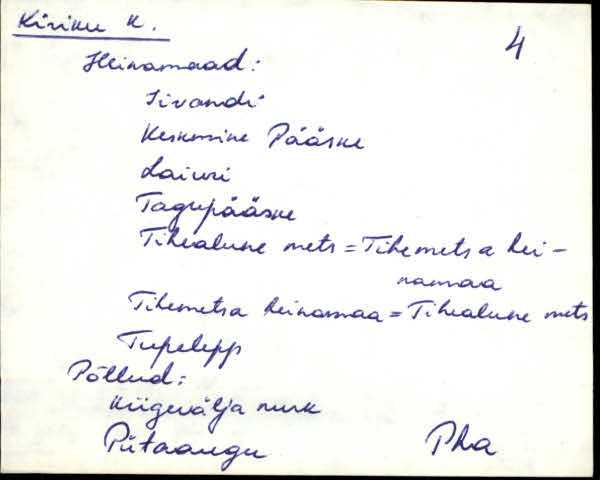 Kiriku k.
4
Heinamaad:
Iivandi
Keskmine Pääske
Laiuri
Tagupääske
Tihealune mets = Tihemetsa hei-
namaa
Tihemetsa heinamaa = Tihealune mets
Tupelepp
Põllud:
Kiigevälja nurk
Piitaaugu
Pha